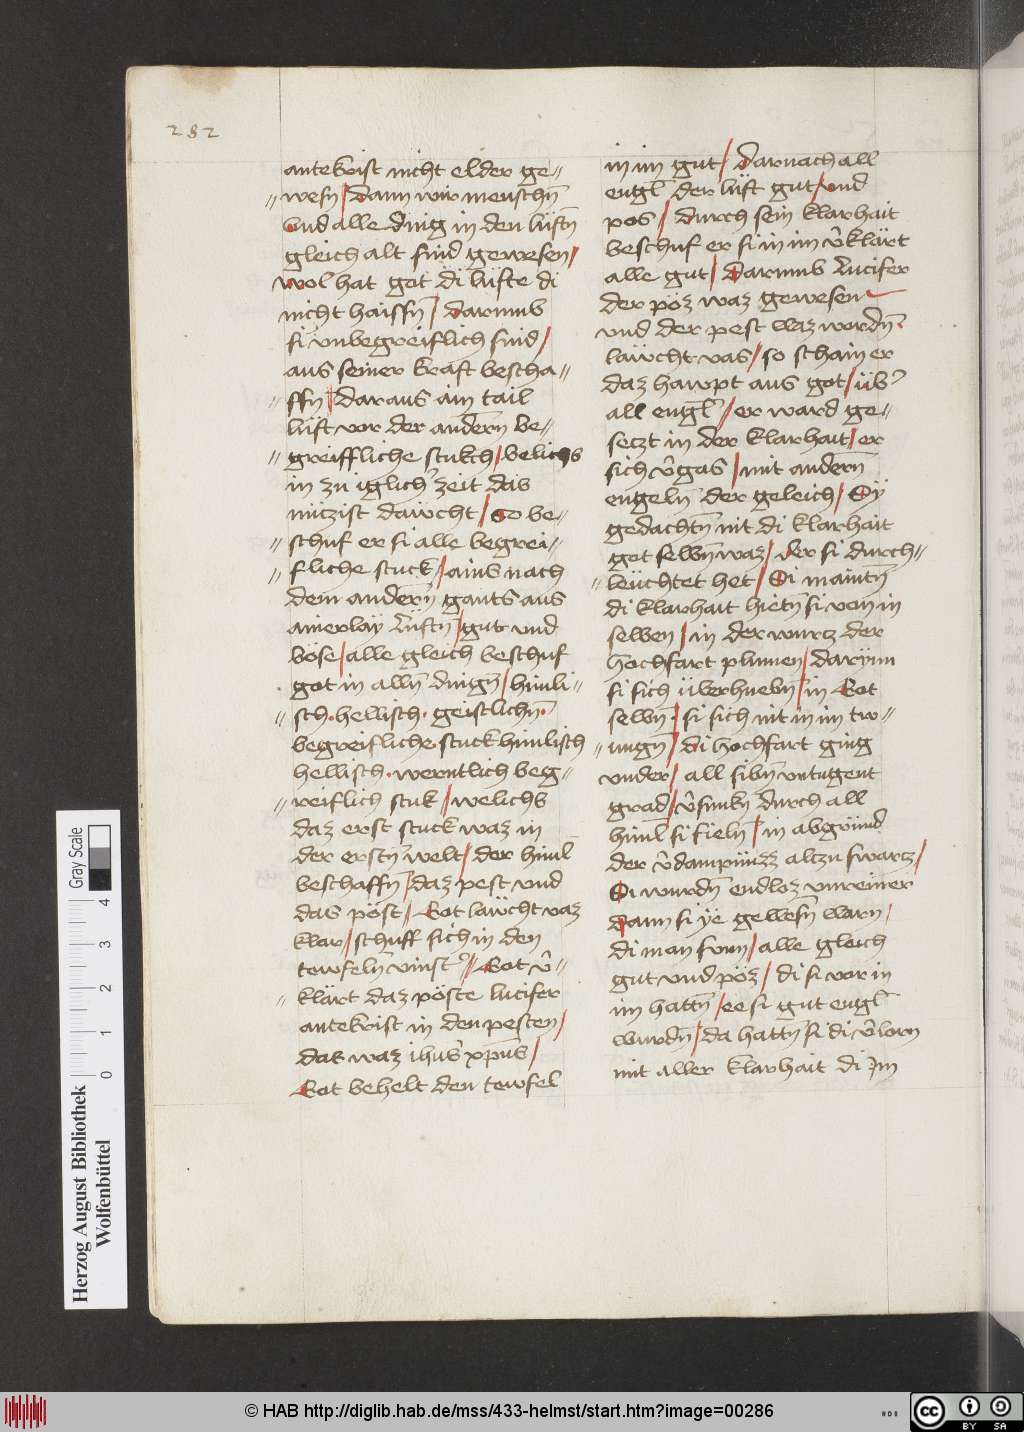 282
antekrist nicht elder ge//
// wesn / dann wir menschn̄
vnd alle ding in den lüftn̄
gleich alt sind gewesen /
wol hat got di lüfte di
nicht haissn̄ / darumb
si vnbegreiflich sind /
aus seiner kraft bescha//
// ffn̄ / daraus ain tail
lüft vor der andern̄ be//
// greiffliche stukch / belichs
in zu iglicħ zeit das
nuczist dawcht / So be//
// schuf er si alle begrei//
// fliche stuck / ains nach
dem andern̄ gants aus
ainerlay lüftn̄ / gut vnd
böse / alle gleich beschuf
got in alln̄ dingn̄ / himli//
// sch · hellisch · geistlichn̄ ·
begreifliche stuck himlisch
hellisch · werntlich beg//
// reiflich stuk / welichs
daz erst stuck waz in
der erstn̄ welt / der himl̄
beschaffn̄ / daz pest vnd
das pöst / Got lawcht vaz
klar / schuff sich in den
tewfeln vinst̉ // Got v̄//
// klärt daz pöste lucifer
antekrist in den pesten /
daz waz ihūs xp̄us /
Got behelt den tewfel
in im gut / Darnach all
engl̄ der lüft gut / vnd
pos / durch sein klarhait
beschuf er si in im v̄klärt
alle gut / Darumb lucifer
der pöz waz gewesen
vnd der pest waz wordn̄ ·
lawcht vas / so schain er
daz hawpt aus got / üb̉
all engl̄ / er ward ge//
seczt in der klarhait / er
sich v̄gas / mit andern̄
engeln̄ der geleich / Sÿ
gedachtn̄ nit di klarhait
got selbn̄ waz / der si durch//
// leüchtet het / Si maintn̄
di klarhait hietn̄ si von in
selben / in der wurcz der
hochfart plumen / darynn
si sich überhuebn̄ / in Got
selbn̄ · si sich nit in im tw//
// ungn̄ / di hochfart ging
vnder / all sibn̄ vntugent
grad / v̄sunkn̄ durch all
himl̄ si fieln̄ / in abgründ
der v̄dampnüzz alczu swarcz /
Si wurdn̄ endloz vnreiner
Dann si ÿe gewesn̄ warn /
di man sunn / alle gleich
gut vnd pöz / di si vor in
im hattn̄ / ee si gut engl̄
wurdn̄ / da hattn̄ si di v̄lorn
mit aller klarhait di Im
Herzog August Bibliothek
Wolfenbüttel
Gray Scale
0 1 2 3 4
© HAB http://diglib.hab.de/mss/433-helmst/start.htm?image=00286
cc BY SA